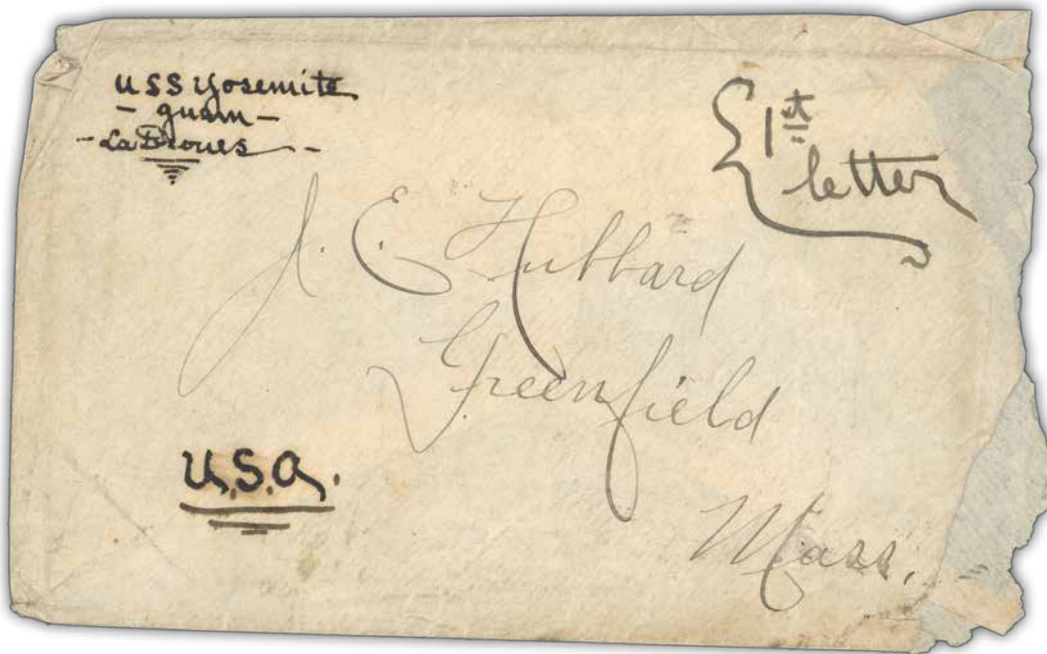 USS Yosemite
- Guam -
- La Drones -
1st
letter
J. E. Hubbard
Greenfield
U.S.A.
Mass.